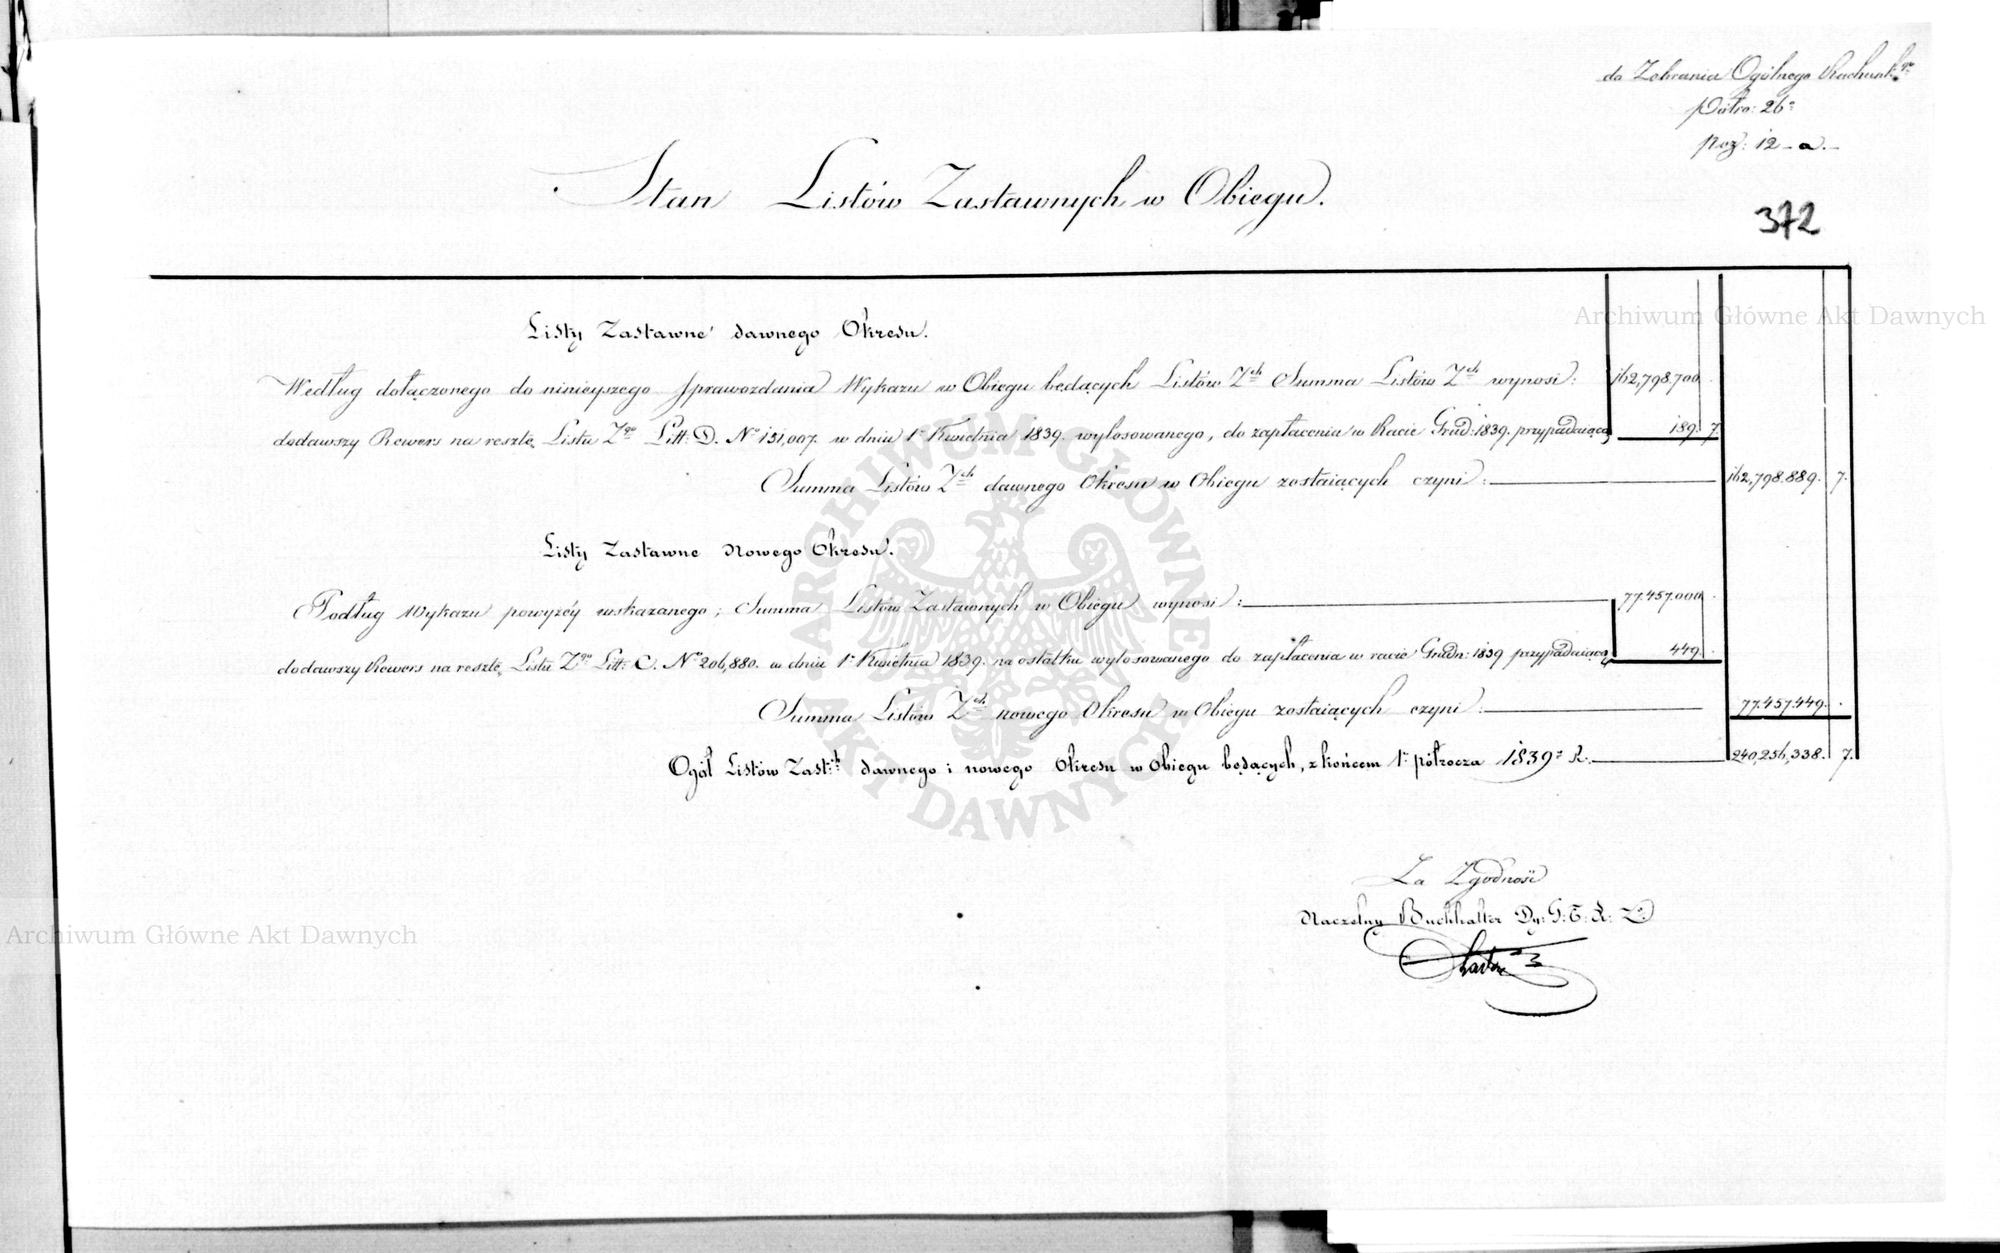 do Zebrania Ogólnego Rachunk:go
półro: 26o
poz: 12 - a. -
Stan Listów Zastawnych w Obiegu.
372
Archiwum Główne Akt Dawnych
Listy Zastawne dawnego Okresu.
Według dołączonego do ninieyszego Sprawozdania Wykazu w Obiegu będących Listów Zch Summa Listów Zch wynosi: 162,798,700 .
dodawszy Rewers na resztę Listu Zgo Litt: D. No 131,007. w dniu 1o Kwietnia 1839. wylosowanego, do zapłacenia w Racie Grud: 1839. przypadaiącą 189. 7
Summa Listów Zch dawnego Okresu w Obiegu zostaiących czyni: 162,798.889. 7.
Listy Zastawne Nowego Okresu.
Podług Wykazu powyżéy wskazanego, Summa Listów Zastawnych w Obiegu wynosi: 77.457.000 .
dodawszy Rewers na resztę Listu Zgo Litt: C. No 206,880. w dniu 1o Kwietnia 1839. na ostatku wylosowanego do zapłacenia w racie Grudn: 1839 przypadaiącą 449. .
Summa Listów Zch nowego Okresu w Obiegu zostaiących czyni: 77.457.449. .
Ogół Listów Zast:ch dawnego i nowego Okresu w Obiegu będących, z końcem 1o półrocza 1839o R. 240,256,338. 7.
ARCHIWUM GŁÓWNE AKT DAWNYCH
Za Zgodność
Naczelny Buchhalter Dy: G: T: K: Zo
Archiwum Główne Akt Dawnych